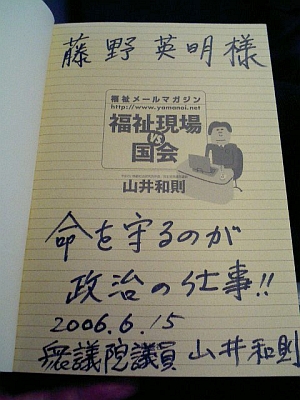 藤野英明様
福祉メールマガジン
http://www.yamanoi.net
福祉現場
VS
国会
山井和則
命を守るのが
政治の仕事!!
2006.6.15
衆議院議員 山井和則